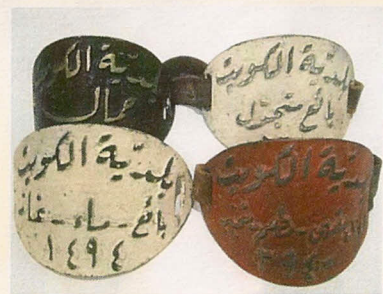 بلدية الكويت
حمال
بلدية الكويت
بائع متجول
بلدية الكويت
بائع - ماء - غاز
١٤٩٤
بلدية الكويت